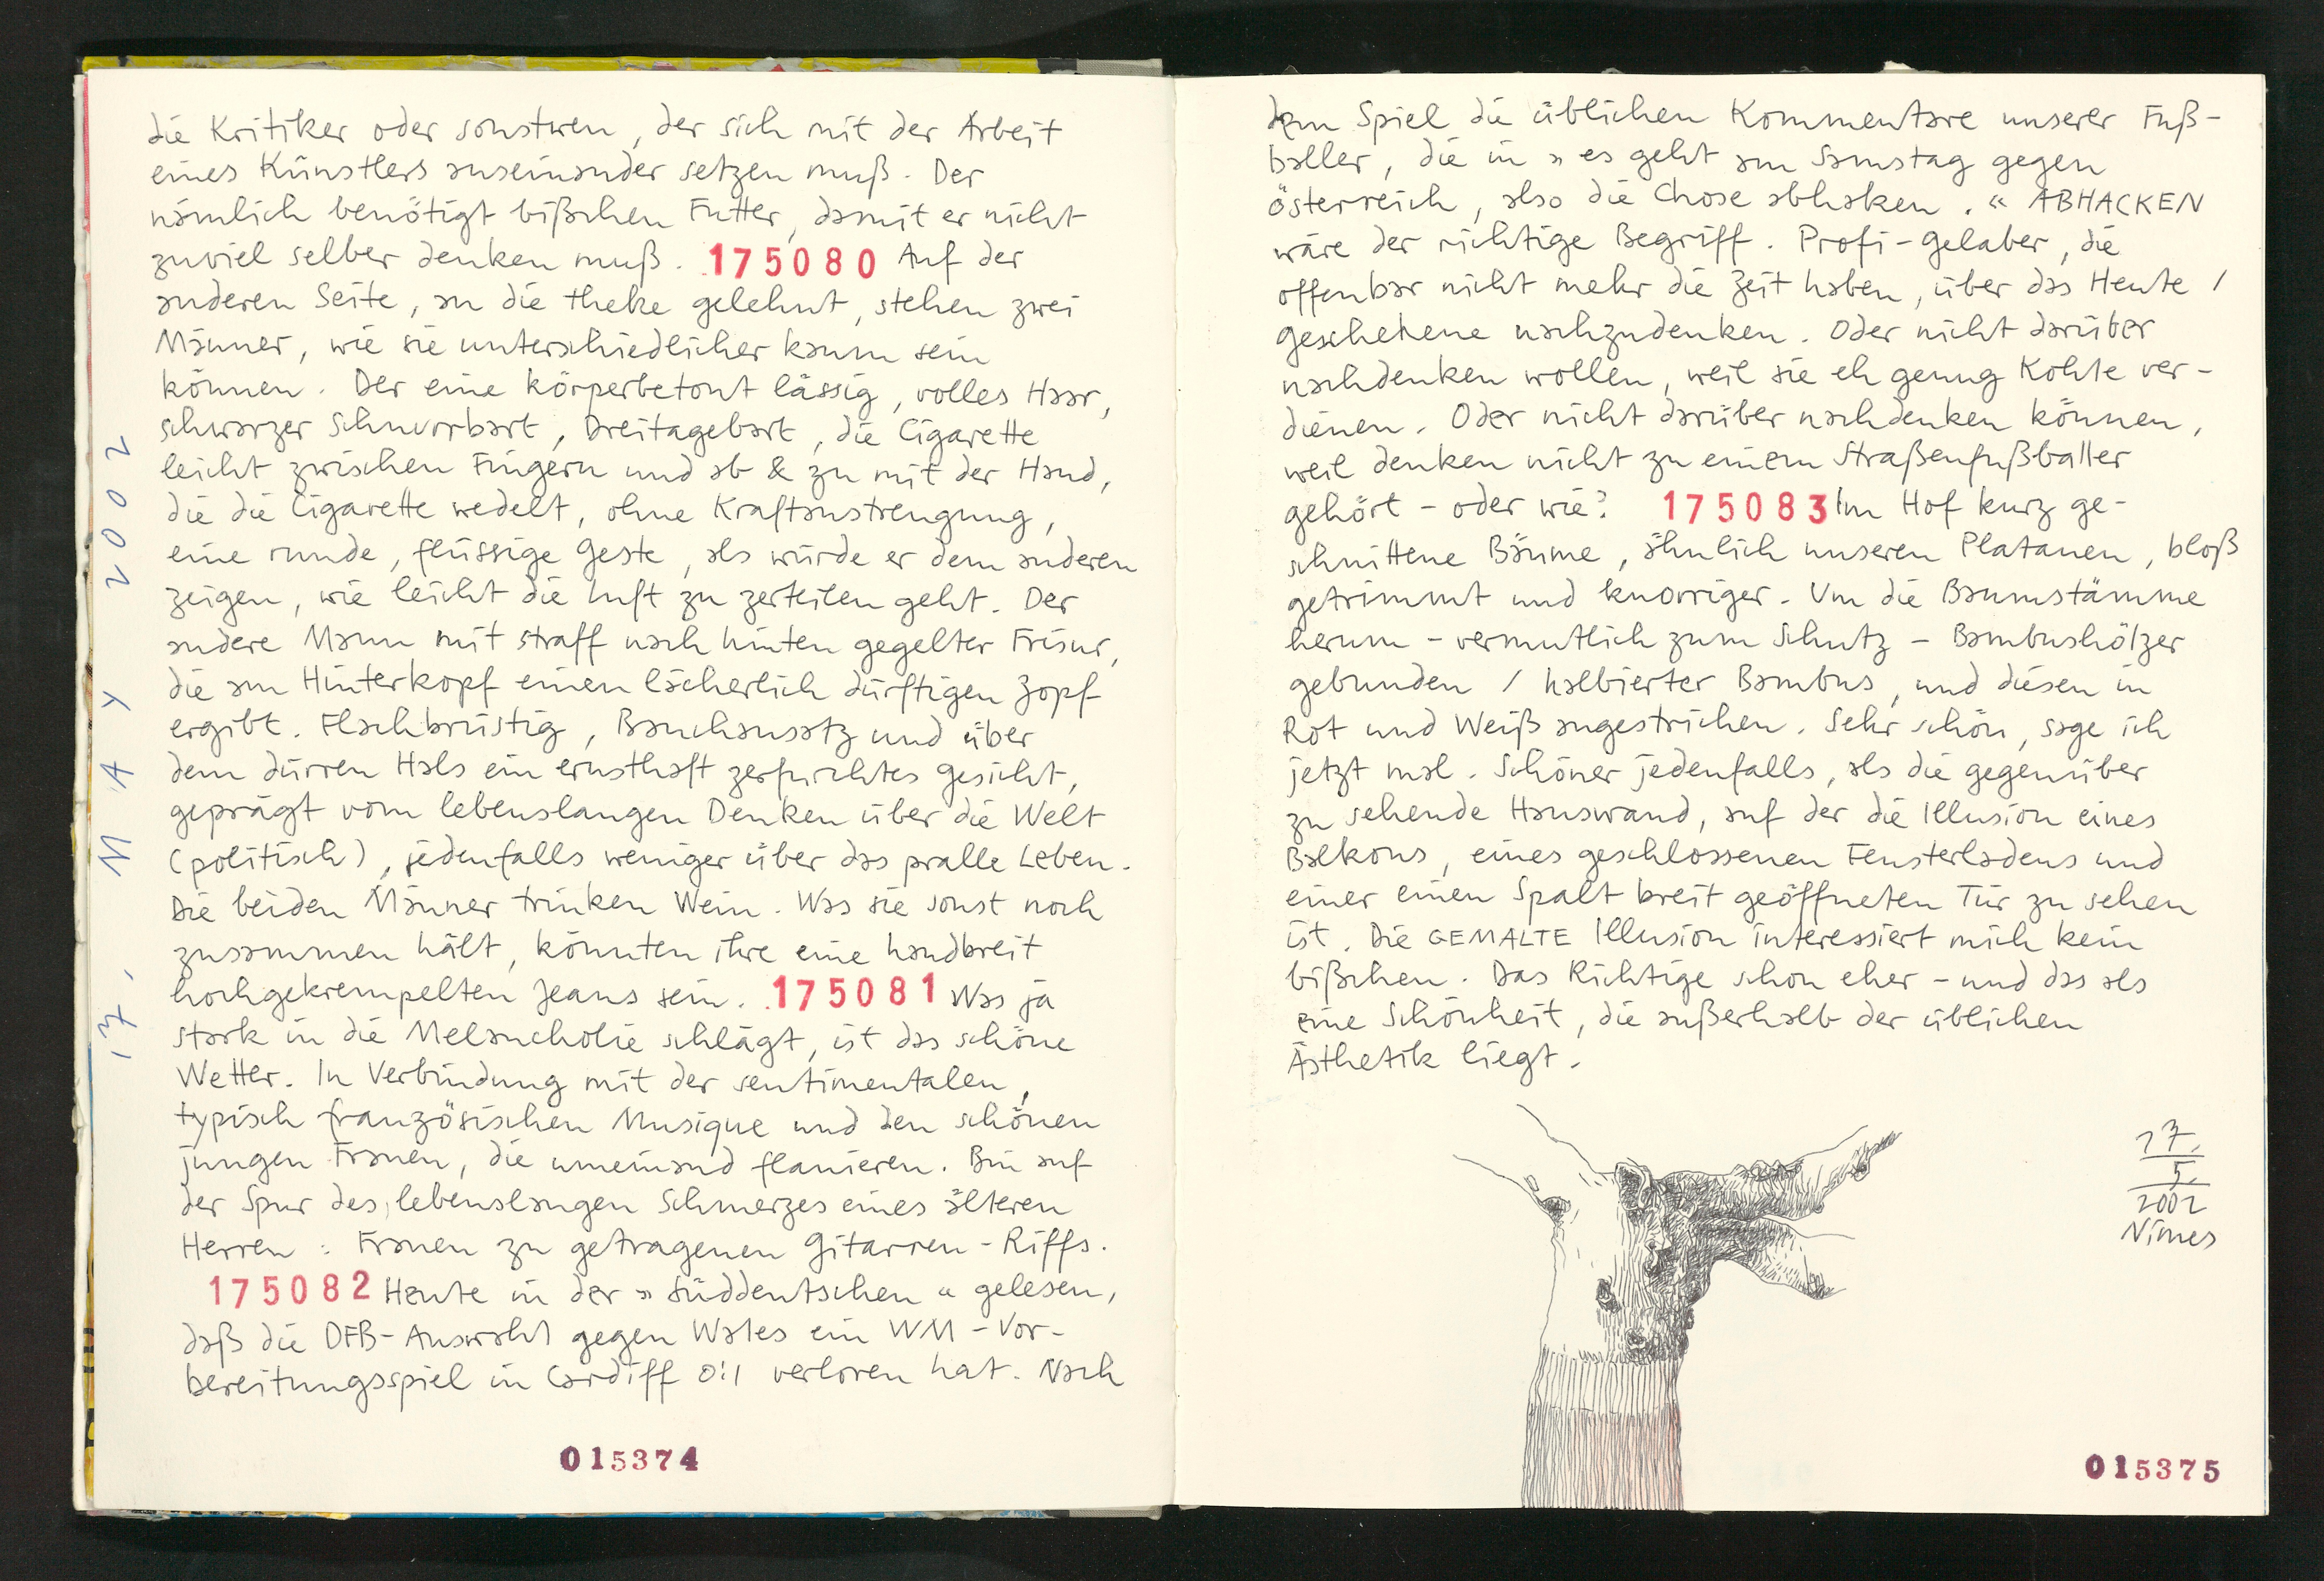 17. MAY 2002
die Kritiker oder sonstwen, der sich mit der Arbeit
eines Künstlers auseinander setzen muß. Der
nämlich benötigt bißchen Futter, damit er nicht
zuviel selber denken muß. 175080 Auf der
anderen Seite, an die Theke gelehnt, stehen zwei
Männer, wie sie unterschiedlicher kaum sein
können. Der eine körperbetont lässig, volles Haar,
schwarzer Schnurrbart, Dreitagebart, die Cigarette
leicht zwischen Fingern und ab & zu mit der Hand,
die die Cigarette wedelt, ohne Kraftanstrengung,
eine runde, flüssige Geste, als würde er dem anderen
zeigen, wie leicht die Luft zu zerteilen geht. Der
andere Mann mit straff nach hinten gegelter Frisur,
die am Hinterkopf einen lächerlich dürftigen Zopf
ergibt. Flachbrüstig, Bauchansatz und über
dem dürren Hals ein ernsthaft zerfurchtes Gesicht,
geprägt vom lebenslangen Denken über die Welt
(politisch), jedenfalls weniger über das pralle Leben.
Die beiden Männer trinken Wein. Was sie sonst noch
zusammen hält, könnten ihre eine handbreit
hochgekrempelten Jeans sein. 175081 Was ja
stark in die Melancholie schlägt, ist das schöne
Wetter. In Verbindung mit der sentimentalen,
typisch französischen Musique und den schönen
jungen Frauen, die umeinand flanieren. Bin auf
der Spur des lebenslangen Schmerzes eines älteren
Herren: Frauen zu getragenen Gitarren-Riffs.
175082 Heute in der »Süddeutschen« gelesen,
daß die DFB-Auswahl gegen Wales ein WM-Vor-
bereitungsspiel in Cardiff 0:1 verloren hat. Nach
015374
dem Spiel die üblichen Kommentare unserer Fuß-
baller, die in »es geht am Samstag gegen
Österreich, also die Chose abhaken.« ABHACKEN
wäre der richtige Begriff. Profi-Gelaber, die
offenbar nicht mehr die Zeit haben, über das Heute /
Geschehene nachzudenken. Oder nicht darüber
nachdenken wollen, weil sie eh genug Kohle ver-
dienen. Oder nicht darüber nachdenken können,
weil denken nicht zu einem Straßenfußballer
gehört - oder wie? 175083 Im Hof kurz ge-
schnittene Bäume, ähnlich unseren Platanen, bloß
getrimmt und knorriger. Um die Baumstämme
herum - vermutlich zum Schutz - Bambushölzer
gebunden / halbierter Bambus, und diesen in
Rot und Weiß angestrichen. Sehr schön, sage ich
jetzt mal. Schöner jedenfalls, als die gegenüber
zu sehende Hauswand, auf der die Illusion eines
Balkons, eines geschlossenen Fensterladens und
einer einen Spalt breit geöffneten Tür zu sehen
ist. Die GEMALTE Illusion interessiert mich kein
bißchen. Das Richtige schon eher - und das als
eine Schönheit, die außerhalb der üblichen
Ästhetik liegt.
17.
5.
2002
Nimes
015375